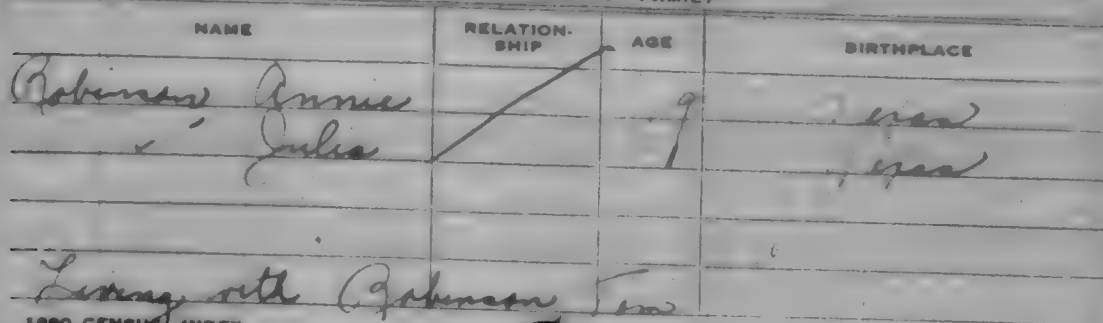 NAME RELATION-SHIP AGE BIRTHPLACE
Robinson, Annie 9
" Julia
Living with Robinson Tom
1880 CENSUS INDEX